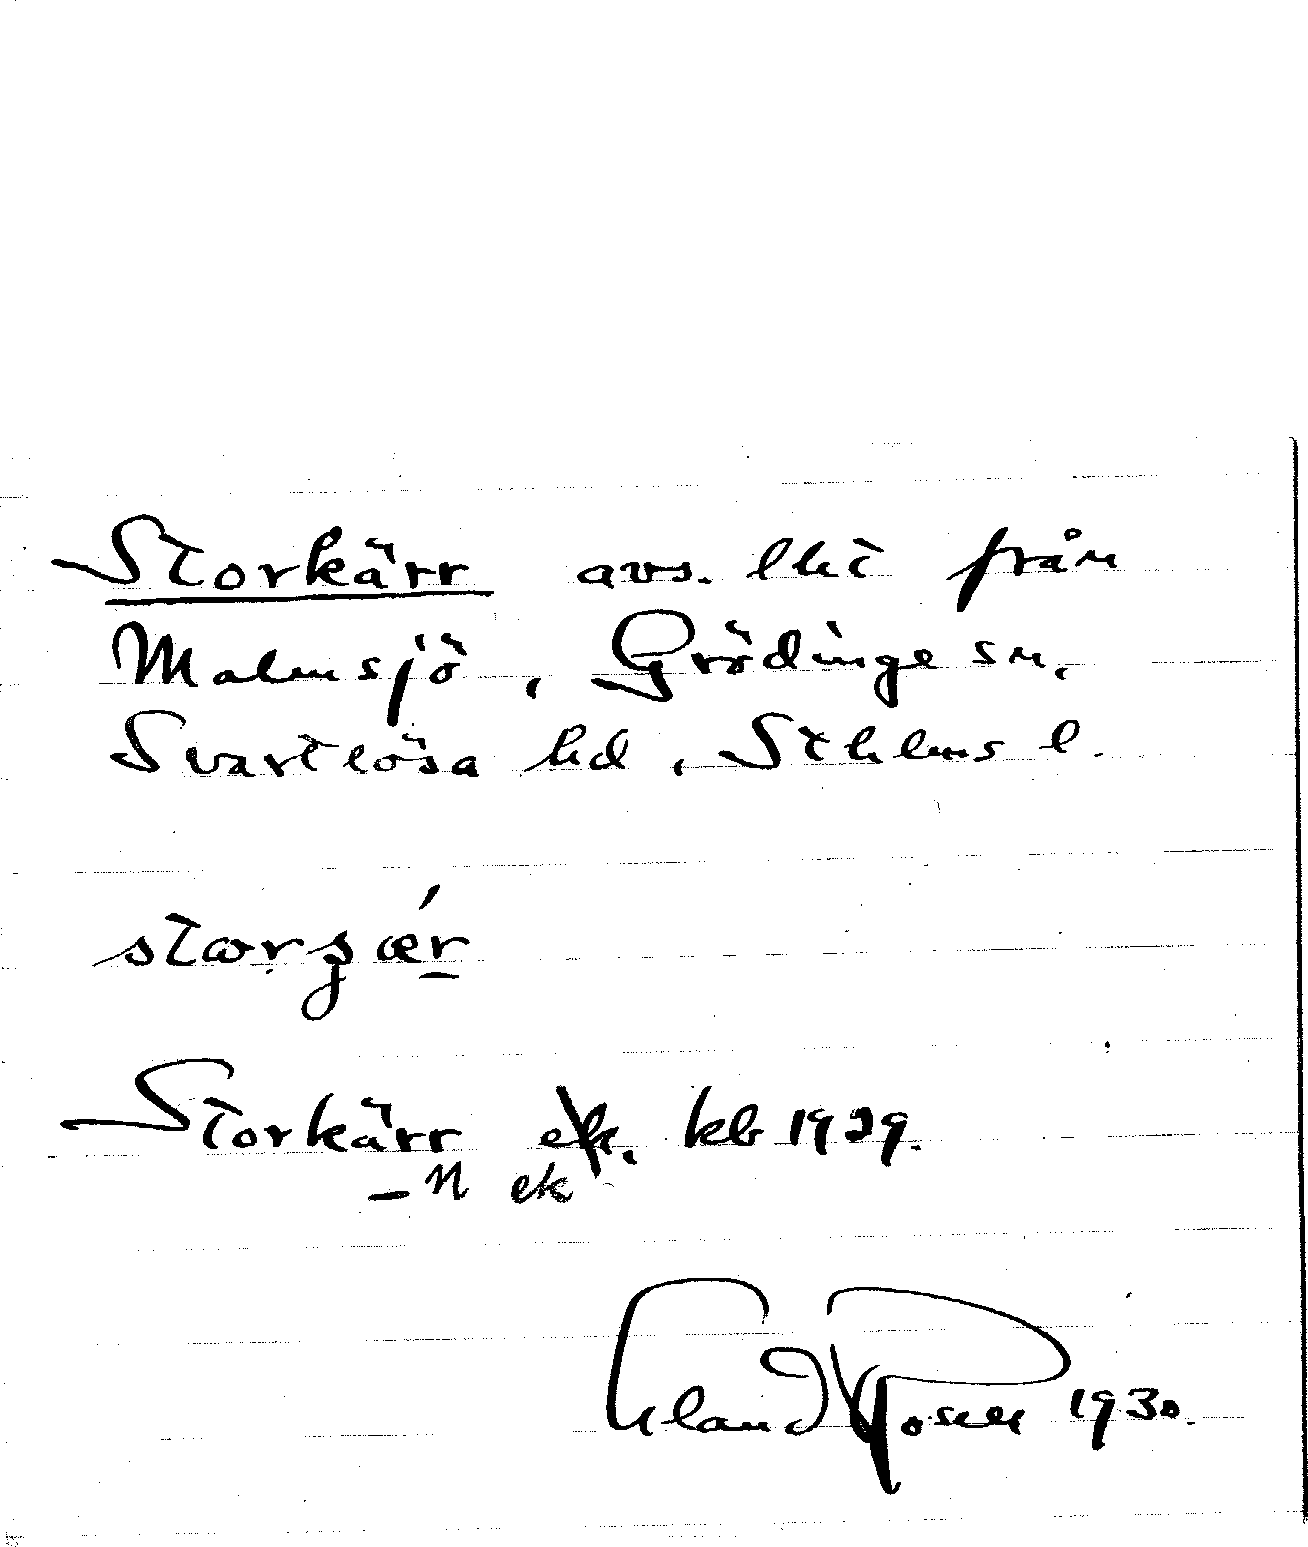 Storkärr avs. lht från
Malmsjö, Grödinge sn,
Svartlösa hd, Sthlms l.
Storkärr ek. kb 1929.
–n ek
Erland Rosell 1930.